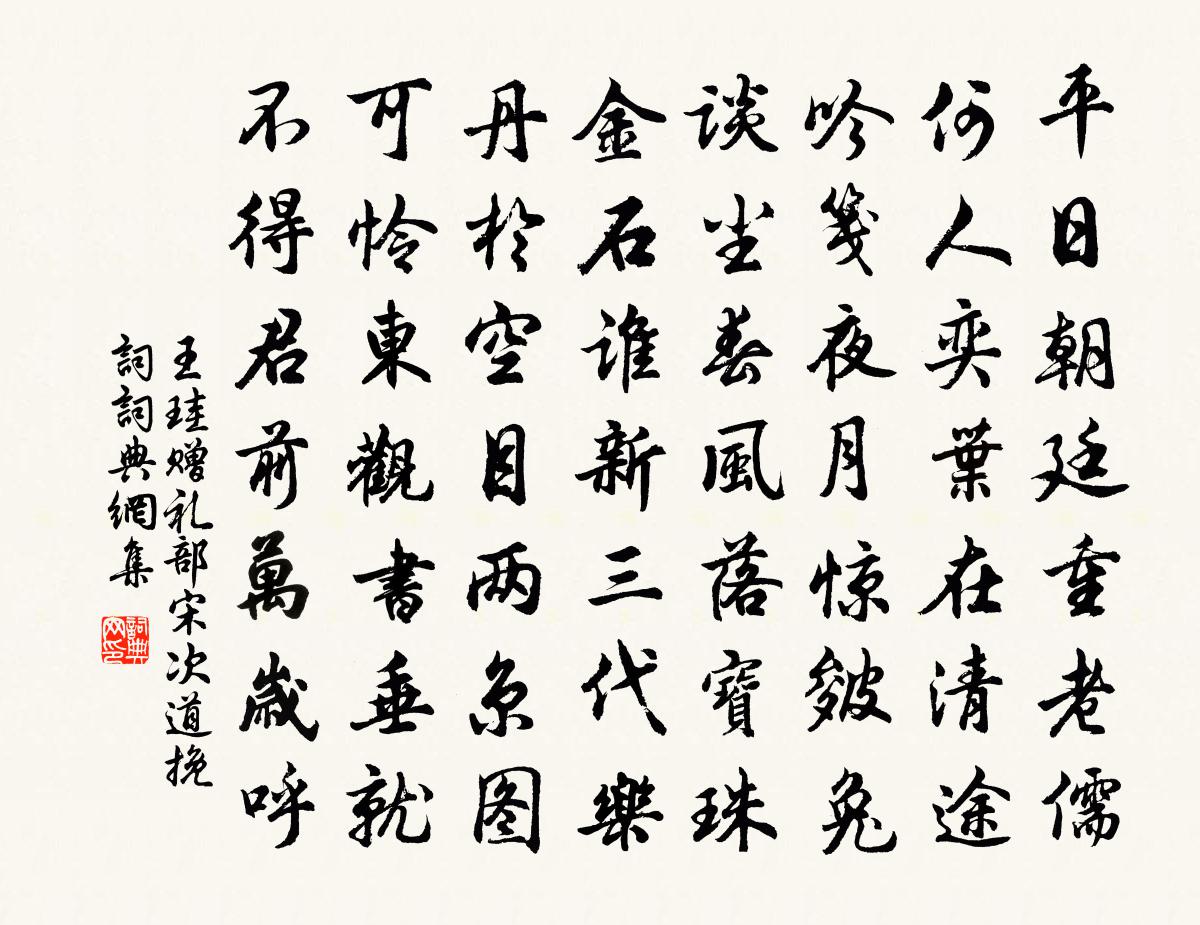 平日朝廷重老儒
何人奕葉在清途
吟箋夜月惊皺兔
谈坐春風落寶珠
金石谁新三代樂
丹於空目两京图
可怜東觀書垂就
不得君前萬歲呼
王珪赠礼部宋次道挽
詞詞典網集
詞典网印